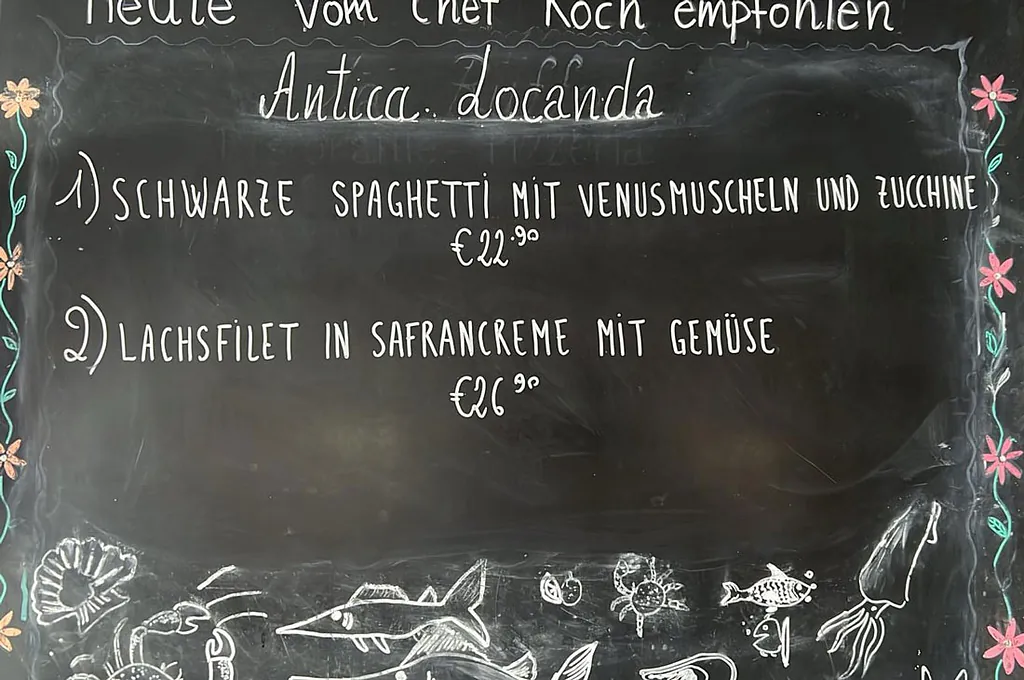 Heute vom Chef Koch empfohlen
Antica Locanda
1) SCHWARZE SPAGHETTI MIT VENUSMUSCHELN UND ZUCCHINE
€22.90
2) LACHSFILET IN SAFRANCREME MIT GEMÜSE
€26 90